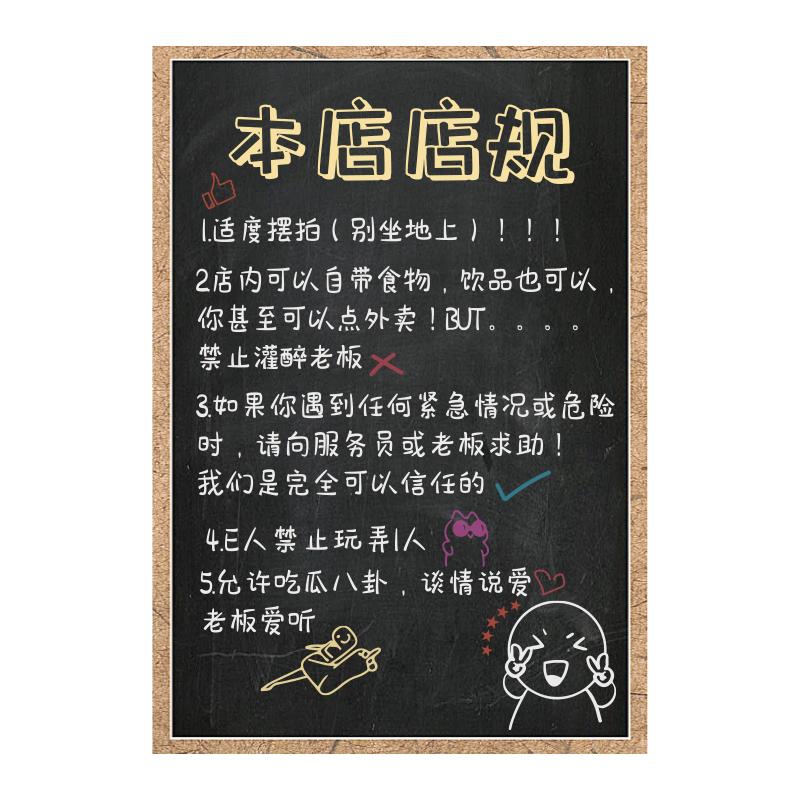 本店店规
1.适度摆拍（别坐地上）！！！
2店内可以自带食物，饮品也可以，
你甚至可以点外卖！BUT。。。。
禁止灌醉老板
3.如果你遇到任何紧急情况或危险
时，请向服务员或老板求助！
我们是完全可以信任的
4.E人禁止玩弄I人
5.允许吃瓜八卦，谈情说爱
老板爱听